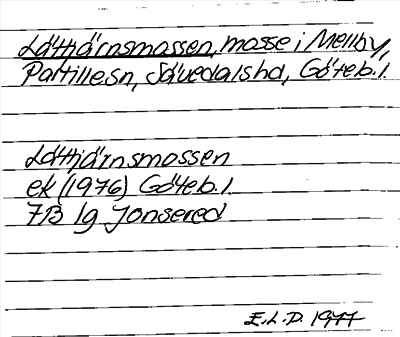 Lättjärnsmossen, mosse i Mellby,
Partille sn, Sävedals hd, Göteb. l.
Lättjärnsmossen
ek (1976) Göteb. l.
7B 1g Jonsered
E.L.D. 1977